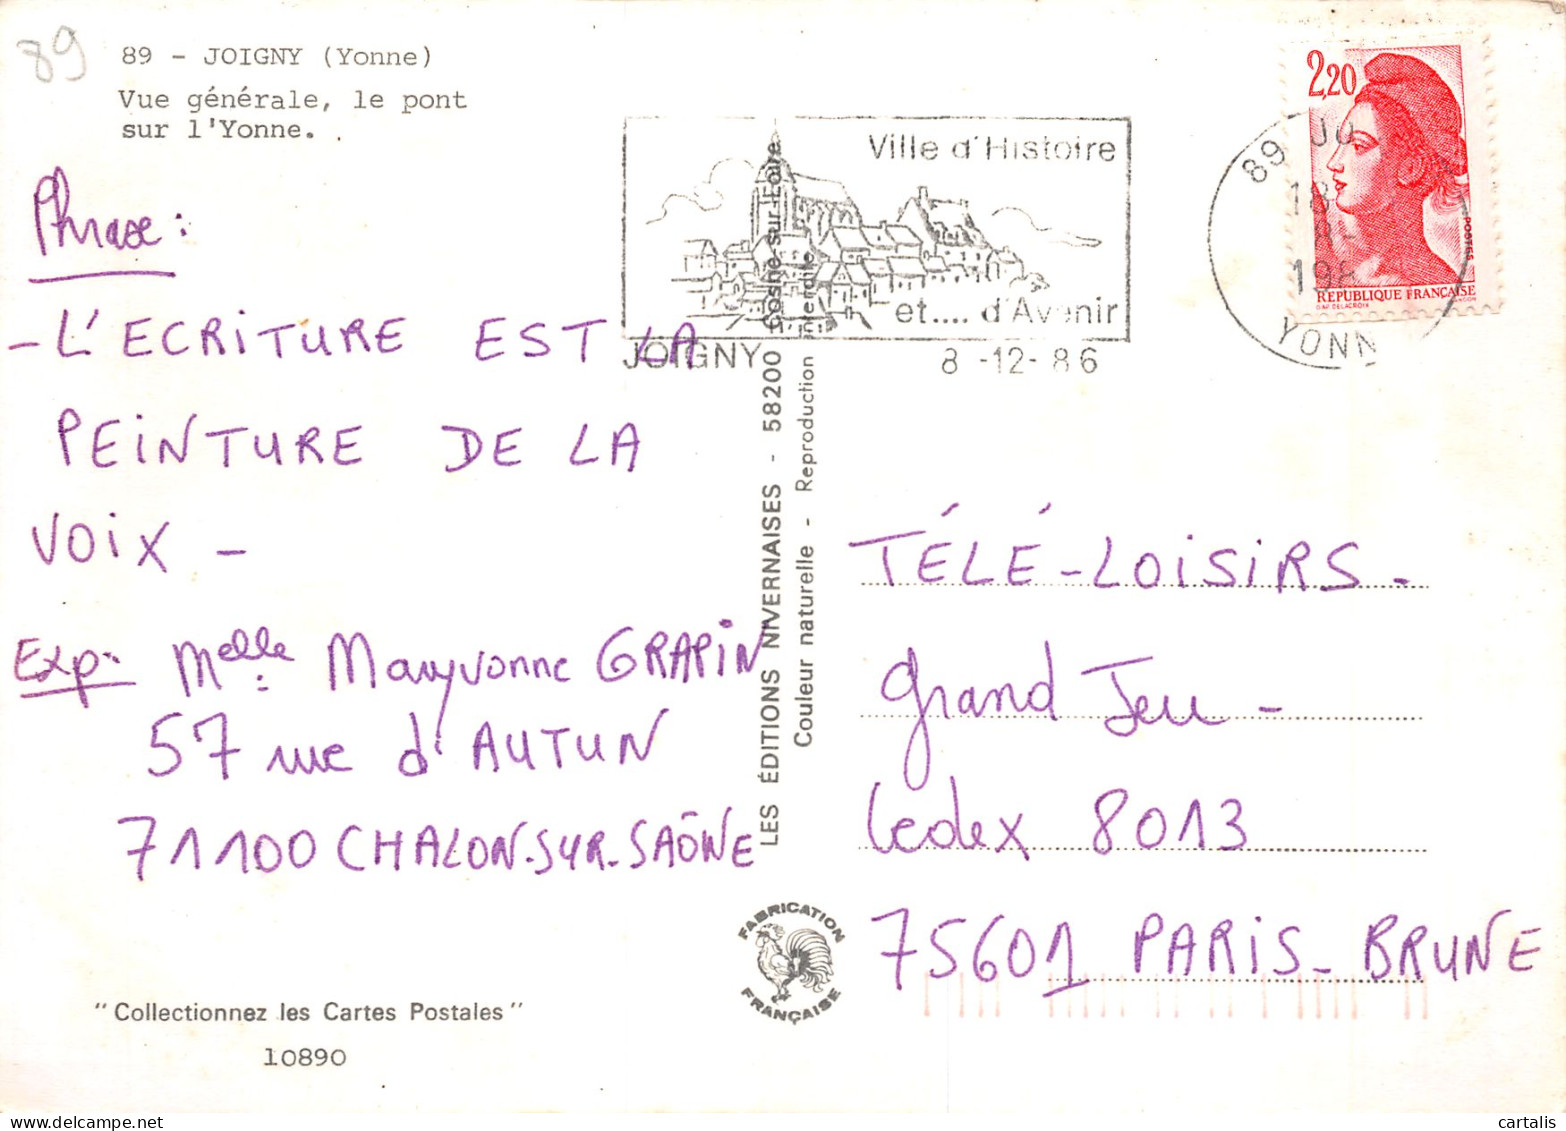 89
89 - JOIGNY (Yonne)
Vue générale, le pont
sur l'Yonne.
Phrase :
- L'ECRITURE EST LA
PEINTURE DE LA
VOIX -
Exp: Melle Maryvonne GRAPIN
57 rue d'AUTUN
71100 CHALON-SUR-SAÔNE
"Collectionnez les Cartes Postales"
10890
LES ÉDITIONS NIVERNAISES - 58200 Cosne-sur-Loire
Couleur naturelle - Reproduction interdite
FABRICATION
FRANÇAISE
Ville d'Histoire
et.... d'Avenir
JOIGNY 8 -12- 86
2,20
POSTES
REPUBLIQUE FRANÇAISE
89 JO
18
8-
198
YONN
TÉLÉ-LOISIRS-
Grand Jeu -
Cedex 8013
75601 PARIS-BRUNE
cartalis